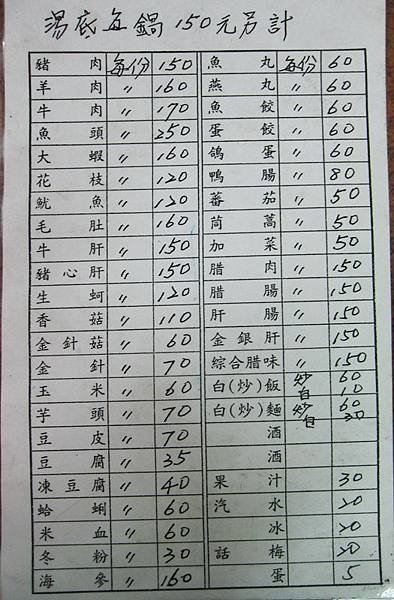 湯底每鍋150元另計
豬肉 每份 150
羊肉 〃 160
牛肉 〃 170
魚頭 〃 250
大蝦 〃 160
花枝 〃 120
魷魚 〃 120
毛肚 〃 160
牛肝 〃 150
豬心肝 〃 150
生蚵 〃 120
香菇 〃 110
金針菇 〃 60
金針 〃 70
玉米 〃 60
芋頭 〃 70
豆皮 〃 70
豆腐 〃 35
凍豆腐 〃 40
蛤蜊 〃 60
米血 〃 60
冬粉 〃 30
海參 〃 160
魚丸 每份 60
燕丸 〃 60
魚餃 〃 60
蛋餃 〃 60
鴿蛋 〃 60
鴨腸 〃 80
蕃茄 〃 50
茼蒿 〃 50
加菜 〃 50
腊肉 〃 150
腊腸 〃 150
肝腸 〃 150
金銀肝 〃 150
綜合腊味 〃 150
白(炒)飯 炒 60
白 10
白(炒)麵 炒 60
白 30
酒
酒
果汁 30
汽水 20
冰 20
話梅 20
蛋 5